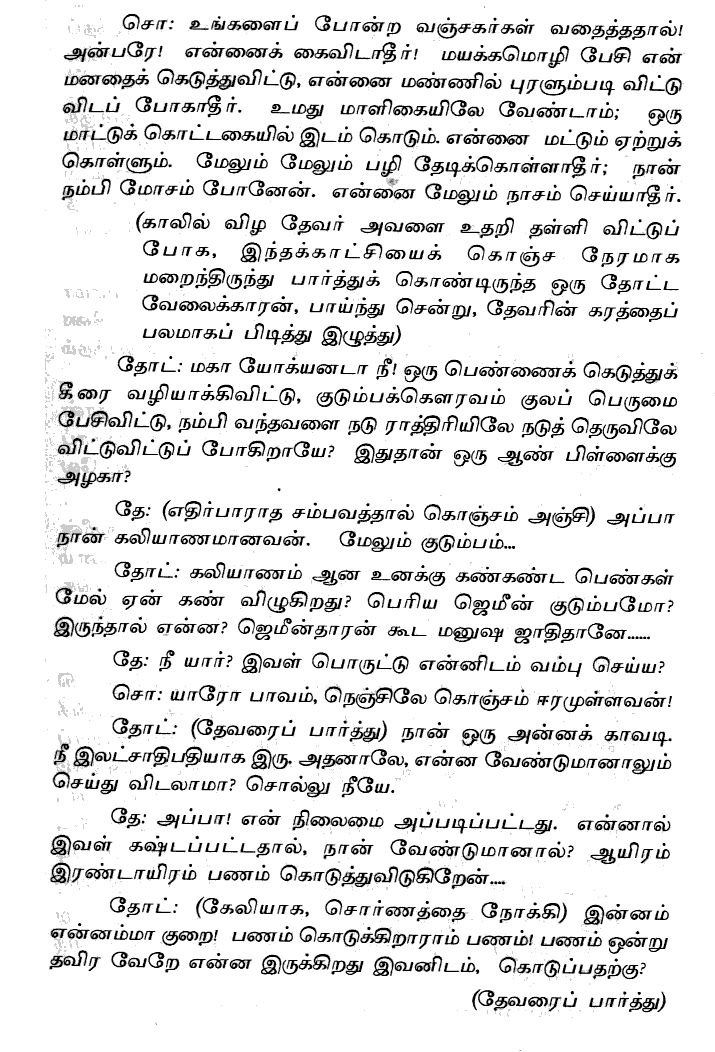 சொ: உங்களைப் போன்ற வஞ்சகர்கள் வதைத்ததால்!
அன்பரே! என்னைக் கைவிடாதீர்! மயக்கமொழி பேசி என்
மனதைக் கெடுத்துவிட்டு, என்னை மண்ணில் புரளும்படி விட்டு
விடப் போகாதீர். உமது மாளிகையிலே வேண்டாம்; ஒரு
மாட்டுக் கொட்டகையில் இடம் கொடும். என்னை மட்டும் ஏற்றுக்
கொள்ளும். மேலும் மேலும் பழி தேடிக்கொள்ளாதீர்; நான்
நம்பி மோசம் போனேன். என்னை மேலும் நாசம் செய்யாதீர்.
(காலில் விழ தேவர் அவளை உதறி தள்ளி விட்டுப்
போக, இந்தக்காட்சியைக் கொஞ்ச நேரமாக
மறைந்திருந்து பார்த்துக் கொண்டிருந்த ஒரு தோட்ட
வேலைக்காரன், பாய்ந்து சென்று, தேவரின் கரத்தைப்
பலமாகப் பிடித்து இழுத்து)
தோட்: மகா யோக்யனடா நீ! ஒரு பெண்ணைக் கெடுத்துக்
கீரை வழியாக்கிவிட்டு, குடும்பக்கௌரவம் குலப் பெருமை
பேசிவிட்டு, நம்பி வந்தவளை நடு ராத்திரியிலே நடுத் தெருவிலே
விட்டுவிட்டுப் போகிறாயே? இதுதான் ஒரு ஆண் பிள்ளைக்கு
அழகா?
தே: (எதிர்பாராத சம்பவத்தால் கொஞ்சம் அஞ்சி) அப்பா
நான் கலியாணமானவன். மேலும் குடும்பம்...
தோட்: கலியாணம் ஆன உனக்கு கண்கண்ட பெண்கள்
மேல் ஏன் கண் விழுகிறது? பெரிய ஜெமீன் குடும்பமோ?
இருந்தால் என்ன? ஜெமீன்தாரன் கூட மனுஷ ஜாதிதானே......
தே: நீ யார்? இவள் பொருட்டு என்னிடம் வம்பு செய்ய?
சொ: யாரோ பாவம், நெஞ்சிலே கொஞ்சம் ஈரமுள்ளவன்!
தோட்: (தேவரைப் பார்த்து) நான் ஒரு அன்னக் காவடி.
நீ இலட்சாதிபதியாக இரு. அதனாலே, என்ன வேண்டுமானாலும்
செய்து விடலாமா? சொல்லு நீயே.
தே: அப்பா! என் நிலைமை அப்படிப்பட்டது. என்னால்
இவள் கஷ்டப்பட்டதால், நான் வேண்டுமானால்? ஆயிரம்
இரண்டாயிரம் பணம் கொடுத்துவிடுகிறேன்....
தோட்: (கேலியாக, சொர்ணத்தை நோக்கி) இன்னம்
என்னம்மா குறை! பணம் கொடுக்கிறாராம் பணம்! பணம் ஒன்று
தவிர வேறே என்ன இருக்கிறது இவனிடம், கொடுப்பதற்கு?
(தேவரைப் பார்த்து)